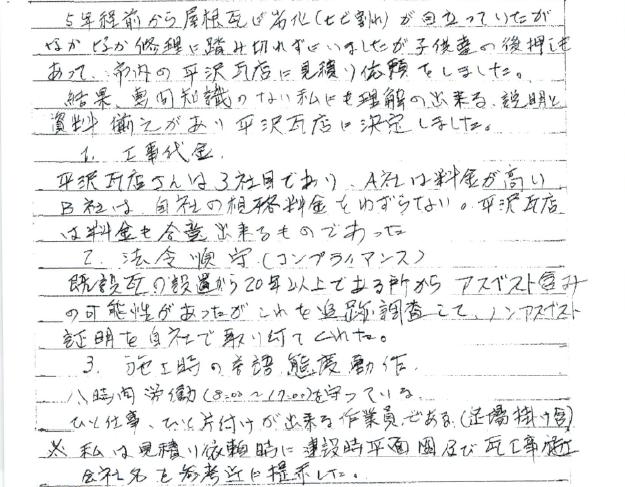 5年程前から屋根瓦に劣化(ヒビ割れ)が目立っていたが
なかなか修理に踏み切れずにいましたが子供達の後押しも
あって、市内の平沢瓦店に見積り依頼をしました。
結果、専門知識のない私にも理解の出来る説明と
資料備えがあり平沢瓦店に決定しました。
1. 工事代金
平沢瓦店さんは3社目であり、A社は料金が高い
B社は、自社の規格料金をゆずらない。平沢瓦店
は料金も合意出来るものであった
2. 法令順守(コンプライアンス)
既設瓦の設置から20年以上である所からアスベスト含み
の可能性があったがこれを追跡調査して、ノンアスベスト
証明を自社で取り付てくれた。
3. 施工時の言語態度動作.
八時間労働(8:00~17:00)を守っている.
ひと仕事、ひと片付けが出来る作業員である(足場掛け含)
※ 私は見積り依頼時に建設時平面図及び瓦工事施工
会社名を参考迄に提示した。